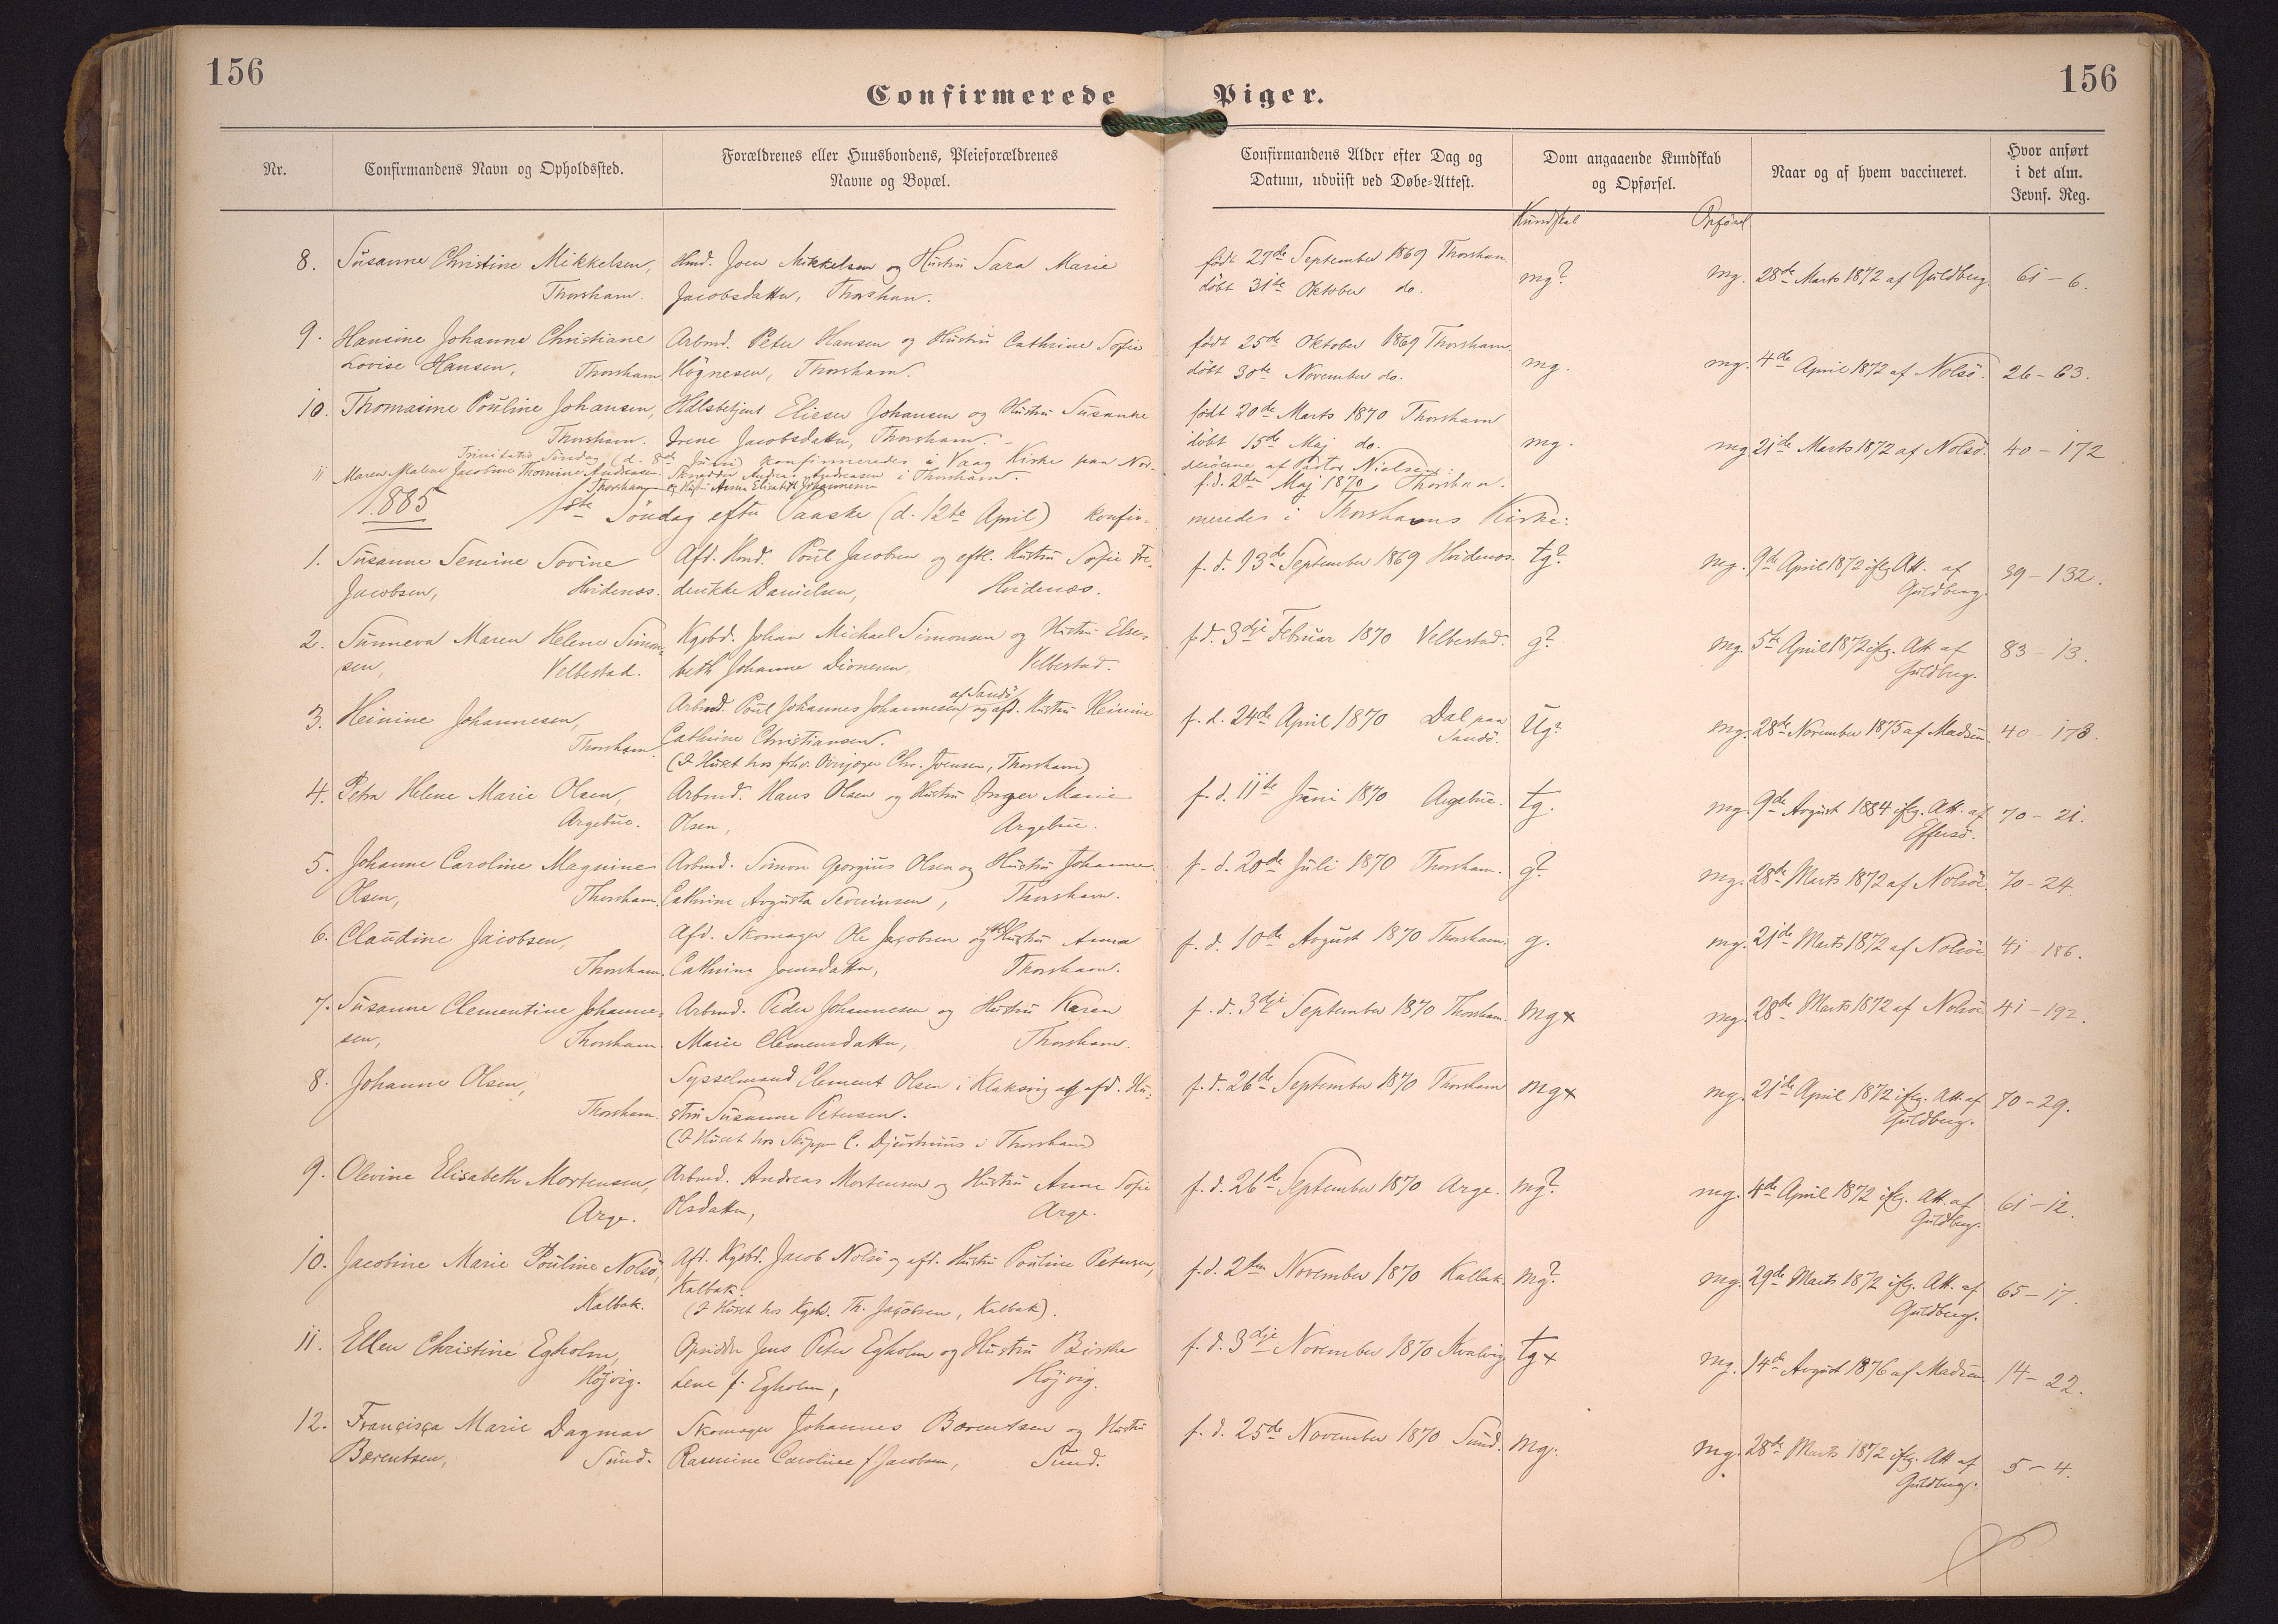 156
156
Confirmerede Piger.
Nr.
Confirmandens Navn og Opholdssted.
Forældrenes eller Huusbondens, Pleieforældrenes
Navne og Bopæl.
Confirmandens Alder efter Dag og
Datum, udviist ved Døbe-Attest.
Dom angaaende Kundskab
og Opførsel.
Naar og af hvem vaccineret.
Hvor anført
i det alm.
Jevnf. Reg.
Kundskab Opførsel
8. Susanne Christine Mikkelsen, Hmd. Joen Mikkelsen og Hustru Sara Marie født 27de September 1869 Thorshavn
Thorshavn. Jacobsdatter, Thorshavn. døbt 31te Oktober do. mg? mg. 28de Marts 1872 af Guldberg. 61 - 6.
9. Hansine Johanne Christiane Arbmd. Peter Hansen og Hustru Cathrine Sofie født 25de Oktober 1869 Thorshavn.
Lovise Hansen, Thorshavn. Högnesen, Thorshavn. døbt 30te November do. mg. mg. 4de April 1872 af Nolsö. 26 - 63.
10. Thomasine Pouline Johansen, Hdlsbetjent Elieser Johansen og Hustru Susanne født 20de Marts 1870 Thorshavn
Thorshavn. Irene Jacobsdatter, Thorshavn. døbt 15de Maj do. mg. mg 21de Marts 1872 af Nolsö. 40 - 172
Trinitatis Søndag (d. 8de Juni) konfirmeredes i Vaag Kirke paa Nor-
deröerne af Pastor Nielsen:
11 Maren Malene Jacobine Thomine Andreasen Skrædder Andreas Andreasen i Thorshavn. f. d. 2den Maj 1870 Thorshavn.
Thorshavn og Hustru Anna Elisabeth Johannesen
1885 1ste Søndag efter Paaske (d. 12te April) konfir- meredes i Thorshavns Kirke:
1. Susanne Semine Sovine Afd. Hmd. Poul Jacobsen og eftl. Hustru Sofie Fre- f. d. 13de September 1869 Hvidenæs. tg? mg. 9de April 1872 iflg. Att. af 39 - 132.
Jacobsen, Hvidenæs. derikke Danielsen, Hvidenæs. Guldberg.
2. Sunneva Maren Helene Simon- Kgsbd. Johan Michael Simonsen og Hustru Else- f. d. 3dje Februar 1870 Velbestad. g? mg. 5te April 1872 iflg. Att af 83 - 13.
sen, Velbestad. beth Johanne Dionesen, Velbestad. Guldberg.
3. Heinine Johannesen, Arbmd. Poul Johannes Johannesen af Sandö og afd. Hustru Heinine f. d. 24de April 1870 Dal paa Ug? mg. 28de November 1875 af Madsen 40 - 178.
Thorshavn. Cathrine Christiansen. Sandö.
(I Huset hos fhv. Chr. Joensen, Thorshavn)
4. Petra Helene Marie Olsen, Arbmd. Hans Olsen og Hustru Inger Marie f. d. 11te Juni 1870 Argebue. tg. mg. 9de August 1884 iflg. Att. af 70 - 21.
Argebue. Olsen, Argebue. Effersö.
5. Johanne Caroline Magnine Arbmd. Simon Georgius Olsen og Hustru Johanne f. d. 20de Juli 1870 Thorshavn. g? mg. 28de Marts 1872 af Nolsöe 70 - 24.
Olsen, Thorshavn. Cathrine Augusta Severinsen, Thorshavn.
6. Claudine Jacobsen, Afd. Skomager Ole Jacobsen og Hustru Anna f. d. 10de August 1870 Thorshavn. g. mg. 21de Marts 1872 af Nolsöe 41 - 186.
Thorshavn. Cathrine Joensdatter, Thorshavn.
7. Susanne Clementine Johanne- Arbmd. Peder Johannesen og Hustru Karen f. d. 3dje September 1870 Thorshavn. mg x mg. 28de Marts 1872 af Nolsöe 41 - 192.
sen, Thorshavn. Marie Clemensdatter, Thorshavn.
8. Johanne Olsen, Sysselmand Clement Olsen i Klaksvig og afd. Hu- f. d. 26de September 1870 Thorshavn mg x mg. 21de April 1872 iflg. Att. af 70 - 29.
Thorshavn. stru Susanne Petersen. Guldberg.
(I Huset hos Skipper C. Djurhuus i Thorshavn)
9. Olevine Elisabeth Mortensen, Arbmd. Andreas Mortensen og Hustru Anne Sofie f. d. 26de September 1870 Arge. mg? mg. 4de April 1872 iflg. Att. af 61 - 12.
Arge. Olsdatter, Arge. Guldberg.
10. Jacobine Marie Pouline Nolsö, Afd. Kgsbd. Jacob Nolsö og afd. Hustru Pouline Petersen, f. d. 2den November 1870 Kalbak. mg? mg. 29de Marts 1872 iflg. Att. af 65 - 17.
Kalbak. Kalbak. Guldberg.
(I Huset hos Kgsb. Th. Jacobsen, Kalbak).
11. Ellen Christine Egholm, Opsidder Jens Peter Egholm og Hustru Birthe f. d. 3dje November 1870 Kvalvig tg x mg. 14de August 1876 af Madsen 14 - 22.
Höjvig. Lene f. Egholm, Höjvig.
12. Francisca Marie Dagmar Skomager Johannes Berentsen og Hustru f. d. 25de November 1870 Sund. mg. mg. 28de Marts 1872 iflg. Att af 5 - 4.
Berentsen, Sund. Rasmine Caroline f. Jacobsen, Sund. Guldberg.